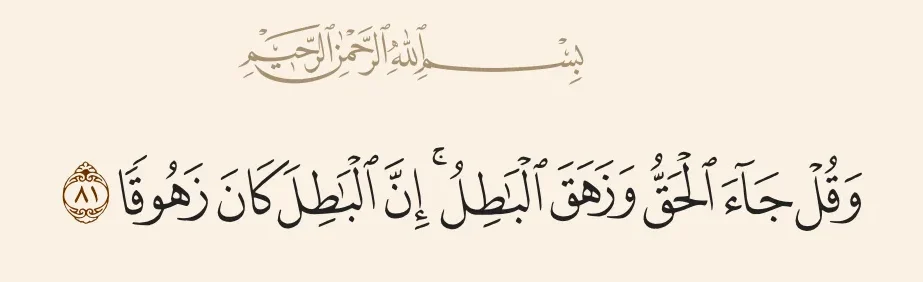 بِسْمِ ٱللَّهِ ٱلرَّحْمَٰنِ ٱلرَّحِيمِ
وَقُلْ جَآءَ ٱلْحَقُّ وَزَهَقَ ٱلْبَٰطِلُ ۚ إِنَّ ٱلْبَٰطِلَ كَانَ زَهُوقًا ٨١